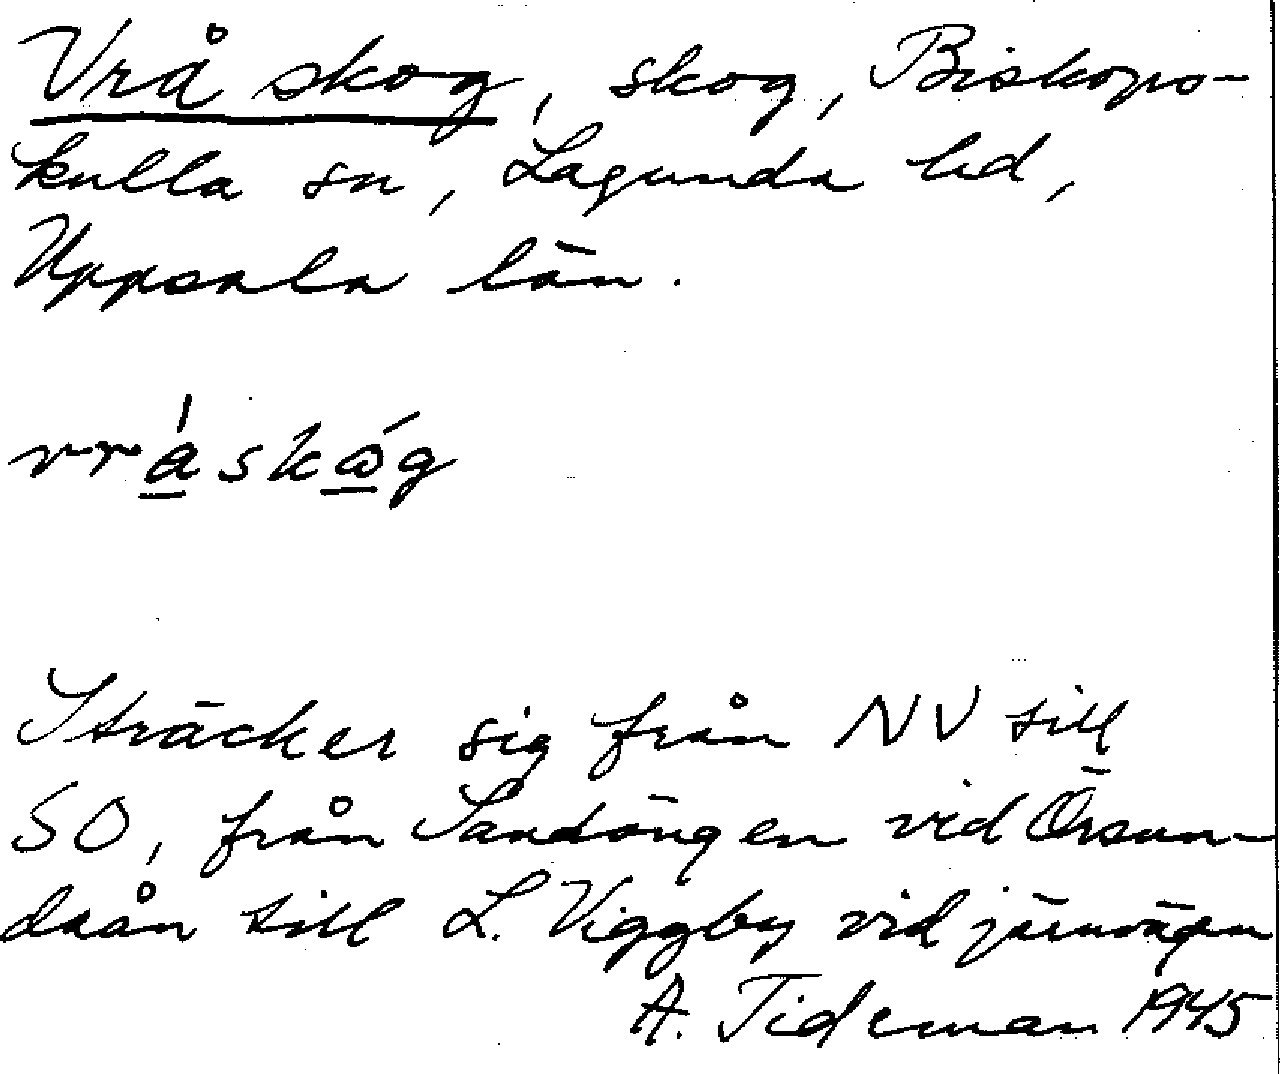 Vrå skog, skog, Biskops-
kulla sn, Lagunda hd,
Uppsala län.
vråskóg
Sträcker sig från NV till
SO, från Sandängen vid Örsun-
daån till L. Viggby vid järnvägen
A. Tideman 1945